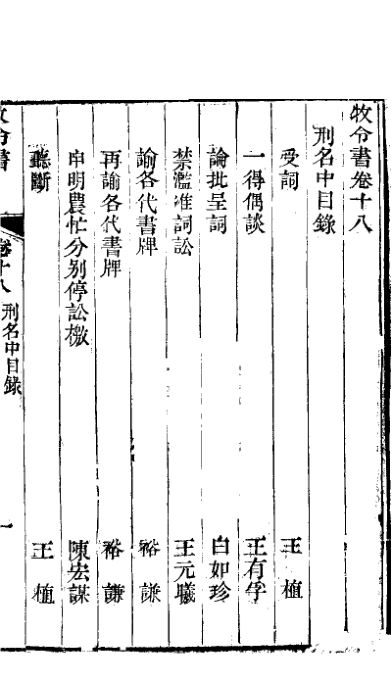 牧令書卷十八
刑名中目錄
受詞 王植
一得偶談 王有孚
論批呈詞 白如珍
禁濫准詞訟 王元曦
諭各代書牌 裕謙
再諭各代書牌 裕謙
申明農忙分别停訟檄 陳宏謀
聽斷 王植
牧令書 卷十八 刑名中目錄 一